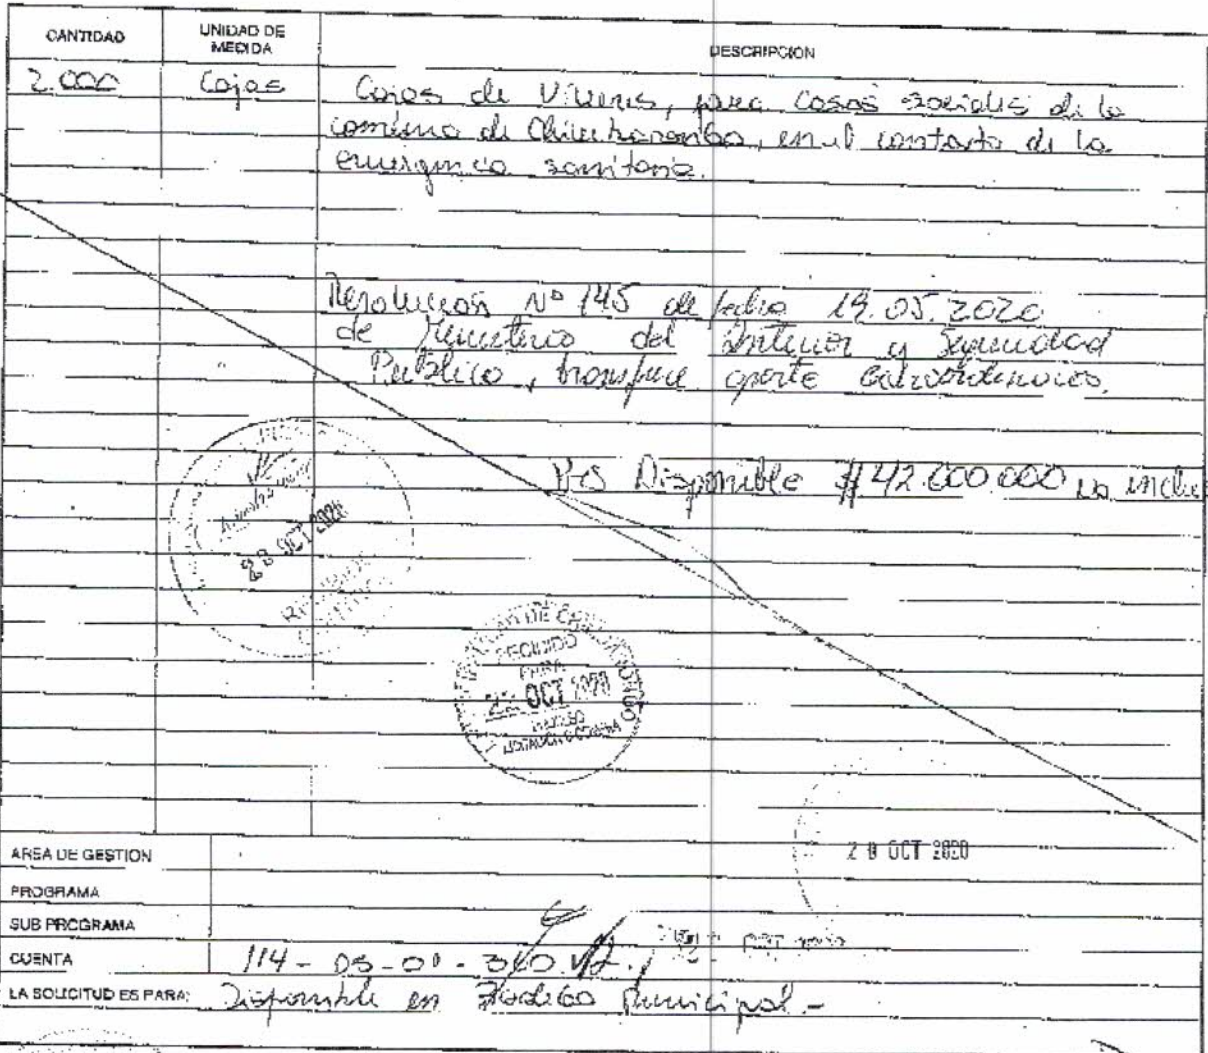 CANTIDAD UNIDAD DE MEDIDA DESCRIPCION
2.000 Cajas Cajas de Viveres, para Casos sociales de la
comuna de Chiguayante, en el contexto de la
emergencia sanitaria.
Resolucion Nº 145 de fecha 19.05.2020
de Ministerio del Interior y Seguridad
Publica, transfiere aporte extraordinario.
Disponible $42.600.000
28 OCT 2020
RECIBIDO
PARA
OCT 2020
28 OCT 2020
AREA DE GESTION
PROGRAMA
SUB PROGRAMA
CUENTA 114-05-01-
LA SOLICITUD ES PARA: Disponible en Municipal.-